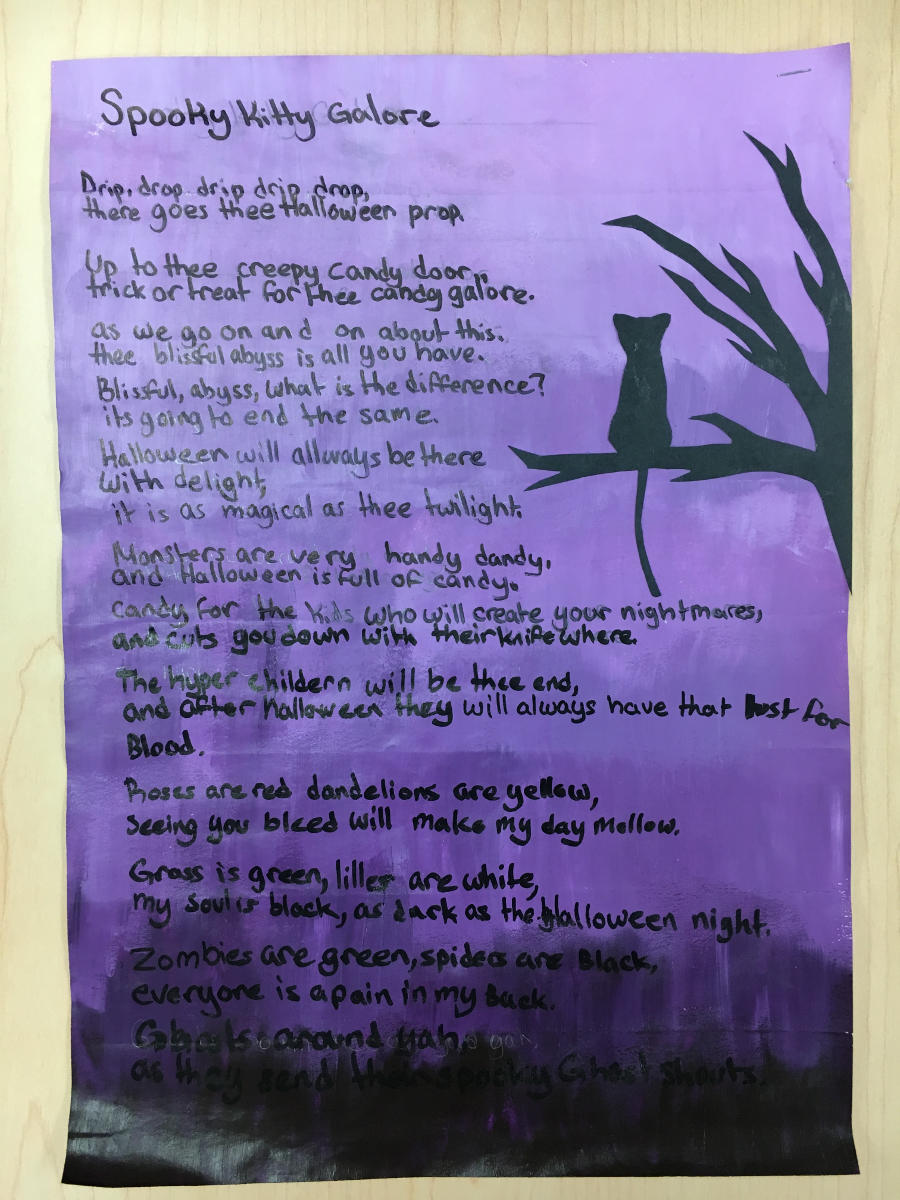 Spooky Kitty Galore
Drip, drop drip drip drop,
there goes thee Halloween prop.
Up to thee creepy candy door,,
trick or treat for thee candy galore.
as we go on and on about this.
thee blissful abyss is all you have.
Blissful, abyss, what is the difference?
its going to end the same.
Halloween will allways be there
with delight,
it is as magical as thee twilight.
Monsters are very handy dandy,
and Halloween is full of candy.
candy for the kids who will create your nightmares,
and cuts you down with their knife where.
The hyper childern will be thee end,
and after halloween they will always have that lust for
Blood.
Roses are red dandelions are yellow,
Seeing you bleed will make my day Mellow.
Grass is green, lilles are white,
my soul is black, as dark as the Halloween night.
Zombies are green, spiders are Black,
everyone is a pain in my Back.
Ghosts around yah,
as they send their spooky Ghost shouts.